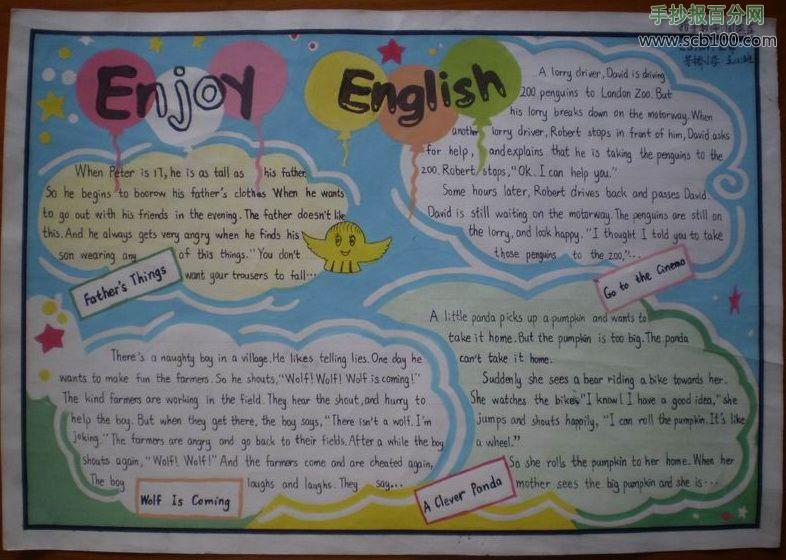 手抄报百分网
www.scb100.com
Enjoy English
When Peter is 17, he is as tall as his father.
So he begins to boorow his father's clothes When he wants
to go out with his friends in the evening. The father doesn't like
this. And he always gets very angry when he finds his
son wearing any of this things. "You don't
want your trousers to fall...
Father's Things
A lorry driver, David is driving
200 penguins to London Zoo. But
his lorry breaks down on the motorway. When
another lorry driver, Robert stops in front of him, David asks
for help, and explains that he is taking the penguins to the
zoo. Robert stops, "Ok. I can help you."
Some hours later, Robert drives back and passes David.
David is still waiting on the motorway. The penguins are still on
the lorry, and look happy. "I thought I told you to take
those penguins to the zoo,"...
Go to the Cinema
There's a naughty boy in a village. He likes telling lies. One day he
wants to make fun the farmers. So he shouts, "Wolf! Wolf! Wolf is coming!"
The kind farmers are working in the field. They hear the shout, and hurry to
help the boy. But when they get there, the boy says, "There isn't a wolf. I'm
joking." The farmers are angry and go back to their fields. After a while the boy
shouts again, "Wolf! Wolf!" And the farmers come and are cheated again,
The boy laughs and laughs. They say...
Wolf Is Coming
A little panda picks up a pumpkin and wants to
take it home. But the pumpkin is too big. The panda
can't take it home.
Suddenly she sees a bear riding a bike towards her.
She watches the bike. "I know! I have a good idea," she
jumps and shouts happily, "I can roll the pumpkin. It's like
a wheel."
So she rolls the pumpkin to her home. When her
mother sees the big pumpkin and she is...
A Clever Panda